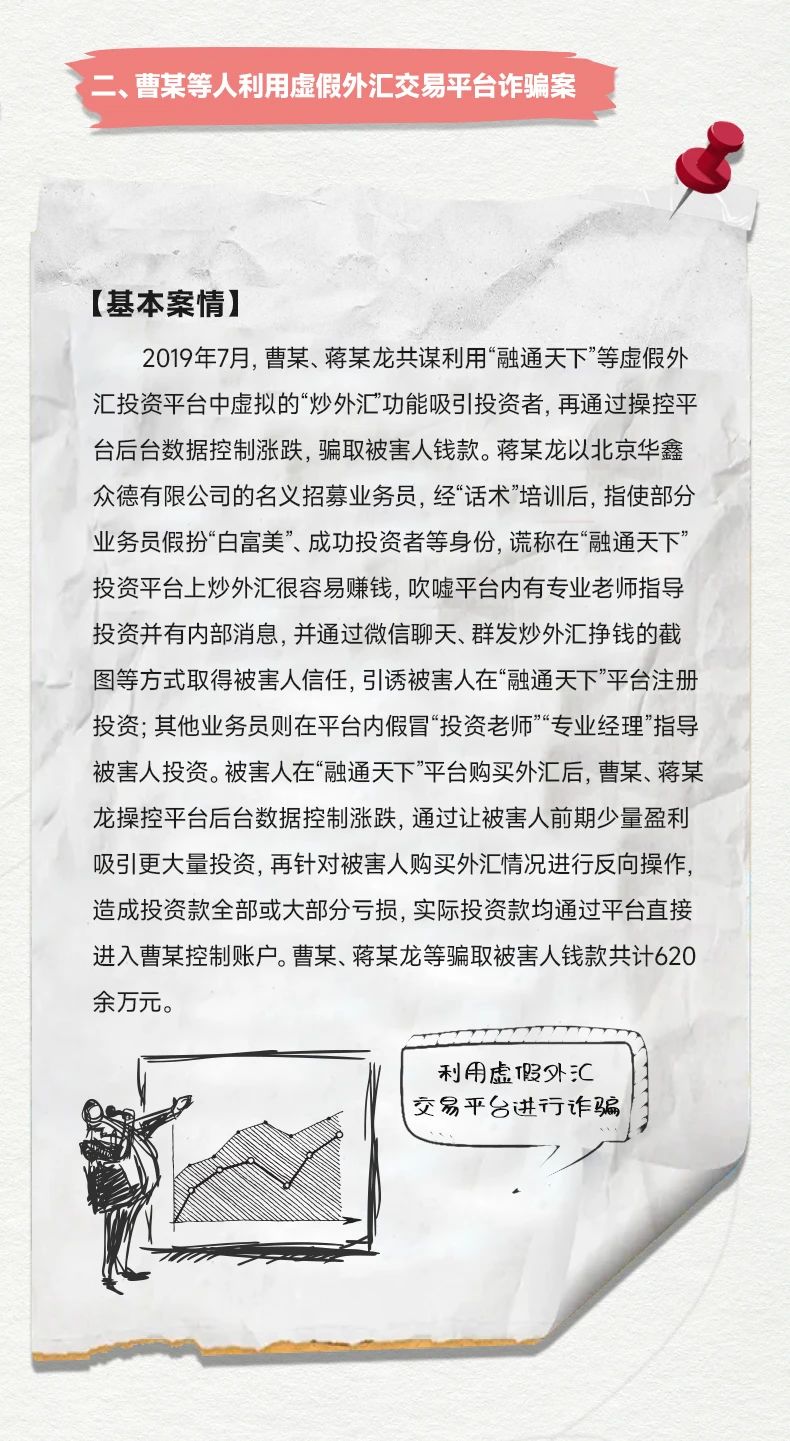 二、曹某等人利用虚假外汇交易平台诈骗案
【基本案情】
2019年7月，曹某、蒋某龙共谋利用“融通天下”等虚假外
汇投资平台中虚拟的“炒外汇”功能吸引投资者，再通过操控平
台后台数据控制涨跌，骗取被害人钱款。蒋某龙以北京华鑫
众德有限公司的名义招募业务员，经“话术”培训后，指使部分
业务员假扮“白富美”、成功投资者等身份，谎称在“融通天下”
投资平台上炒外汇很容易赚钱，吹嘘平台内有专业老师指导
投资并有内部消息，并通过微信聊天、群发炒外汇挣钱的截
图等方式取得被害人信任，引诱被害人在“融通天下”平台注册
投资；其他业务员则在平台内假冒“投资老师”“专业经理”指导
被害人投资。被害人在“融通天下”平台购买外汇后，曹某、蒋某
龙操控平台后台数据控制涨跌，通过让被害人前期少量盈利
吸引更大量投资，再针对被害人购买外汇情况进行反向操作，
造成投资款全部或大部分亏损，实际投资款均通过平台直接
进入曹某控制账户。曹某、蒋某龙等骗取被害人钱款共计620
余万元。
利用虚假外汇
交易平台进行诈骗